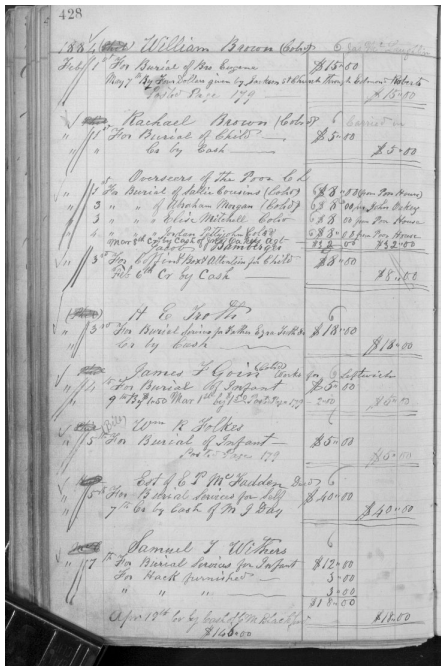 428
1884 William Brown (Cold)
Feby 1st For Burial of Bro Eugene $15.00
May 7th By Four Dollars given by Jackson St Church through Edmond Roberts
Posted Page 179 $15.00
Rachael Brown (Cold) 6
" 1st For Burial of Child $5.00
" " Cr by Cash $5.00
Overseers of the Poor C
" 1st For Burial of Sallie Cousins (Cold) $8.00 from Poor House
" 3 " " of Abraham Morgan (Cold) $8.00 per John Oakey
" 3 " " Elise Mitchell Cold $8.00 from Poor House
" 4 " " Pettyjohn Cold $8.00 from Poor House
Mar 8th Cr by Cash of Agt $32.00 $32.00
" 3rd For Coffin & Box & Attention for Child $8.00
Feb 6th Cr by Cash $8.00
H E Trotts 6
" 3rd For Burial Services for Father $18.00
Cr by Cash $18.00
James F Goin (Cold) Works for G Leftwich
" 4th For Burial of Infant $5.00
9th By $2.50 Mar 1st by Posted Page 179 2.50 $5.00
Wm R Folkes
" 5 For Burial of Infant $5.00
Posted Page 179
Est of E P McFadden Decd 6
" 5th For Burial Services for Self $40.00
7th Cr by Cash of M J Day $40.00
Samuel T Withers 6
" 7th For Burial Services for Infant $12.00
For Hack furnished 3.00
" " " 3.00
$18.00
Apr 12th Cr by Cash $18.00
$146.00